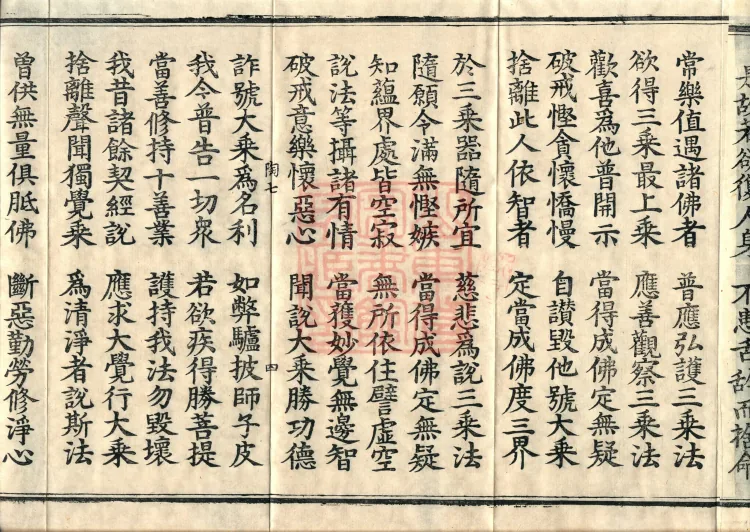 常樂值遇諸佛者　普應弘護三乘法
欲得三乘最上乘　應善觀察三乘法
歡喜爲他普開示　當得成佛定無疑
破戒慳貪懷憍慢　自讚毀他號大乘
捨離此人依智者　定當成佛度三界
於三乘器隨所宜　慈悲爲說三乘法
隨願令滿無慳嫉　當得成佛定無疑
知蘊界處皆空寂　無所依住譬虛空
說法等攝諸有情　當獲妙覺無邊智
破戒意樂懷惡心　聞說大乘勝功德
陶七　四
詐號大乘爲名利　如弊驢披師子皮
我今普告一切衆　若欲疾得勝菩提
當善修持十善業　護持我法勿毀壞
我昔諸餘契經說　應求大覺行大乘
捨離聲聞獨覺乘　爲清淨者說斯法
曾供無量俱胝佛　斷惡勤勞修淨心